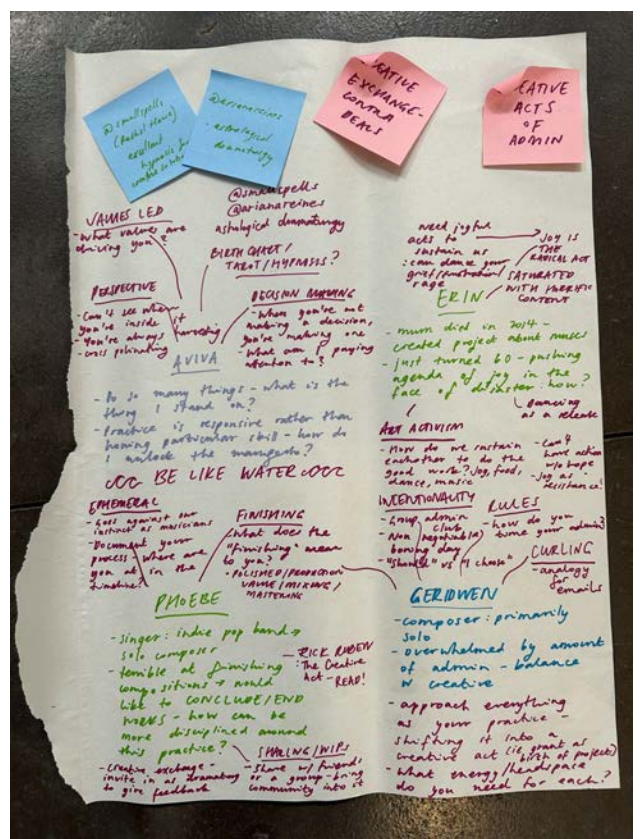 @smallspells
excellent
hypnosis for
@arianareines
- astrological
dramaturgy
EATIVE
EXCHANGE-
CONTRA
DEALS
EATIVE
ACTS
OF
ADMIN
@smallspells
@arianareines
astrological dramaturgy
VALUES LED
- What values are
driving you?
BIRTH CHART/
TAROT/HYPNOSIS?
PERSPECTIVE
- Can't see when
you're inside it
- You're always harvesting
- cross pollinating
DECISION MAKING
- When you're not
making a decision,
you're making one
- What am I paying
attention to?
AVIVA
- Do so many things - what is the
thing I stand on?
- Practice is responsive rather than
honing particular skill - how do
I unlock the
BE LIKE WATER
EPHEMERAL
- Goes against our
instinct as musicians
- Document your
process - where are
you at in the
timeline?
FINISHING
- What does the
"finishing" mean
to you?
- POLISHED/PRODUCTION
VALUE/MIXING/
MASTERING
PHOEBE
- singer: indie pop band →
solo composer
- terrible at finishing
compositions → would
like to CONCLUDE/END
WORKS - how can be
more disciplined around
this practice?
- RICK RUBEN
: The Creative
Act - READ!
- Creative exchange -
invite in as dramaturg
to give feedback
SHARING/WIPS
- Share w/ friends
or a group - bring
community into it
need joyful
acts to
sustain us
: can dance your
grief/frustration/
rage
JOY IS
THE
RADICAL ACT
SATURATED
WITH HORRIFIC
CONTENT
ERIN
- mum died in 2014 -
created project about
- just turned 60 - pushing
agenda of joy in the
face of disaster: how?
Dancing
as a release
ART ACTIVISM
- How do we sustain
eachother to do the
good work? Joy, food,
dance, music
- Can't
have action
w/o hope
- Joy as
resistance!
INTENTIONALITY
- Group admin
club
- Non negotiable/
boring day
- "Should" vs "I choose"
RULES
- how do you
time your admin?
CURLING
- analogy
for
emails
GERIDWEN
- composer: primarily
solo
- overwhelmed by amount
of admin - balance
w creative
- approach everything
as your practice -
shifting it into a
creative act (ie grant as
birth of project)
- What energy/headspace
do you need for each?